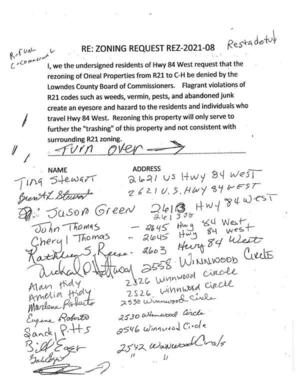 RE: ZONING REQUEST REZ-2021-08
I, we the undersigned residents of Hwy 84 West request that the
rezoning of Oneal Properties from R21 to C-H be denied by the
Lowndes County Board of Commissioners. Flagrant violations of
R21 codes such as weeds, vermin, pests, and abandoned junk
create an eyesore and hazard to the residents and individuals who
travel Hwy 84 West. Rezoning this property will only serve to
further the "trashing" of this property and not consistent with
surrounding R21 zoning.
Turn over
NAME ADDRESS
Tina Stewart 2621 US Hwy 84 West
Stewart 2621 U.S. Hwy 84 West
Jason Green 2613 Hwy 84 West
John Thomas - 2645 Hwy 84 West
Cheryl Thomas - 2645 Hwy 84 West
Kathleen S. Reese 2603 Hwy 84 West
2558 Winnwood Circle
Hidy 2526 Winnwood Circle
Amelia Hidy 2526 Winnwood Circle
Marlene Roberts 2530 Winnwood Circle
Eugene Roberts 2530 Winnwood Circle
Sandy Pitts 2546 Winnwood Circle
Bill 2542 Winnwood Circle
" "